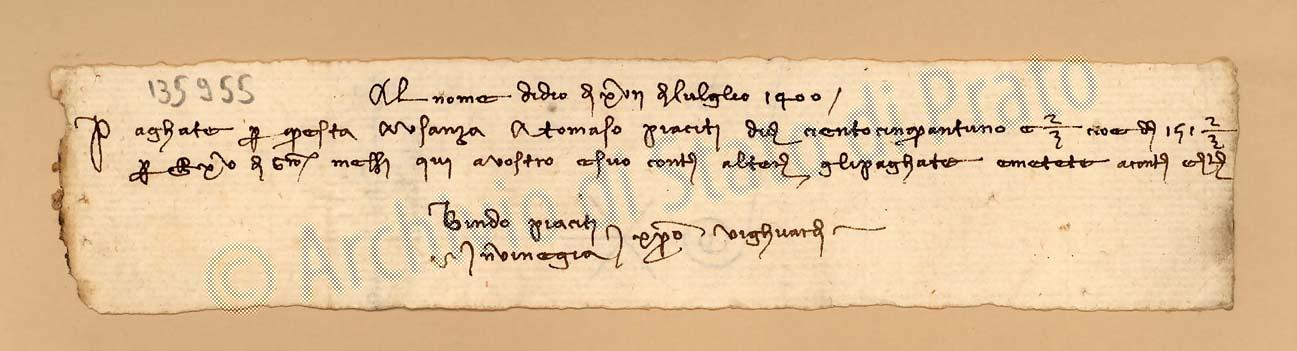 135955
Al nome di dio a xvii di luglio 1400
Paghate per questa a usanza a Tomaso Piaciti ciento cinquantuno e 2/3 cioe 151 2/3
per messi qui a vostro e suo conto gli paghate e metete a conto
Bindo Piaciti
in Vinegia xpo vi ghuardi
© Archivio di Stato di Prato